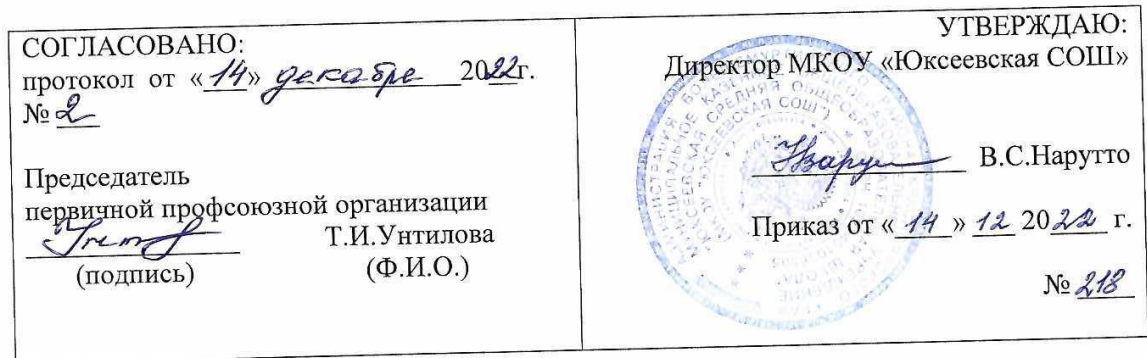 СОГЛАСОВАНО:
протокол от «14» декабря 2022г.
№ 2
Председатель
первичной профсоюзной организации
Т.И.Унтилова
(подпись) (Ф.И.О.)
УТВЕРЖДАЮ:
Директор МКОУ «Юксеевская СОШ»
В.С.Нарутто
Приказ от «14» 12 2022 г.
№ 218